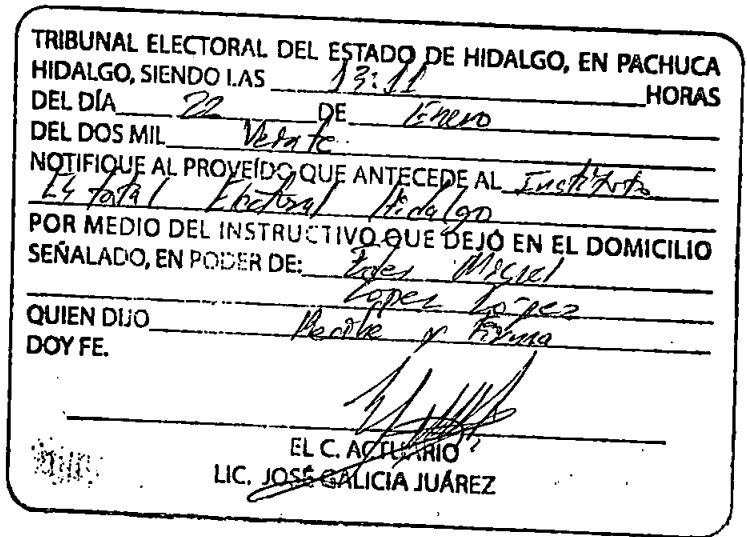 TRIBUNAL ELECTORAL DEL ESTADO DE HIDALGO, EN PACHUCA
HIDALGO, SIENDO LAS 13:11 HORAS
DEL DÍA 22 DE Enero
DEL DOS MIL Veinte
NOTIFIQUE AL PROVEÍDO QUE ANTECEDE AL Instituto
Estatal Electoral Hidalgo
POR MEDIO DEL INSTRUCTIVO QUE DEJÓ EN EL DOMICILIO
SEÑALADO, EN PODER DE: Miguel
Lopez López
QUIEN DIJO Recibe y Firma
DOY FE.
EL C. ACTUARIO
LIC. JOSÉ GALICIA JUÁREZ